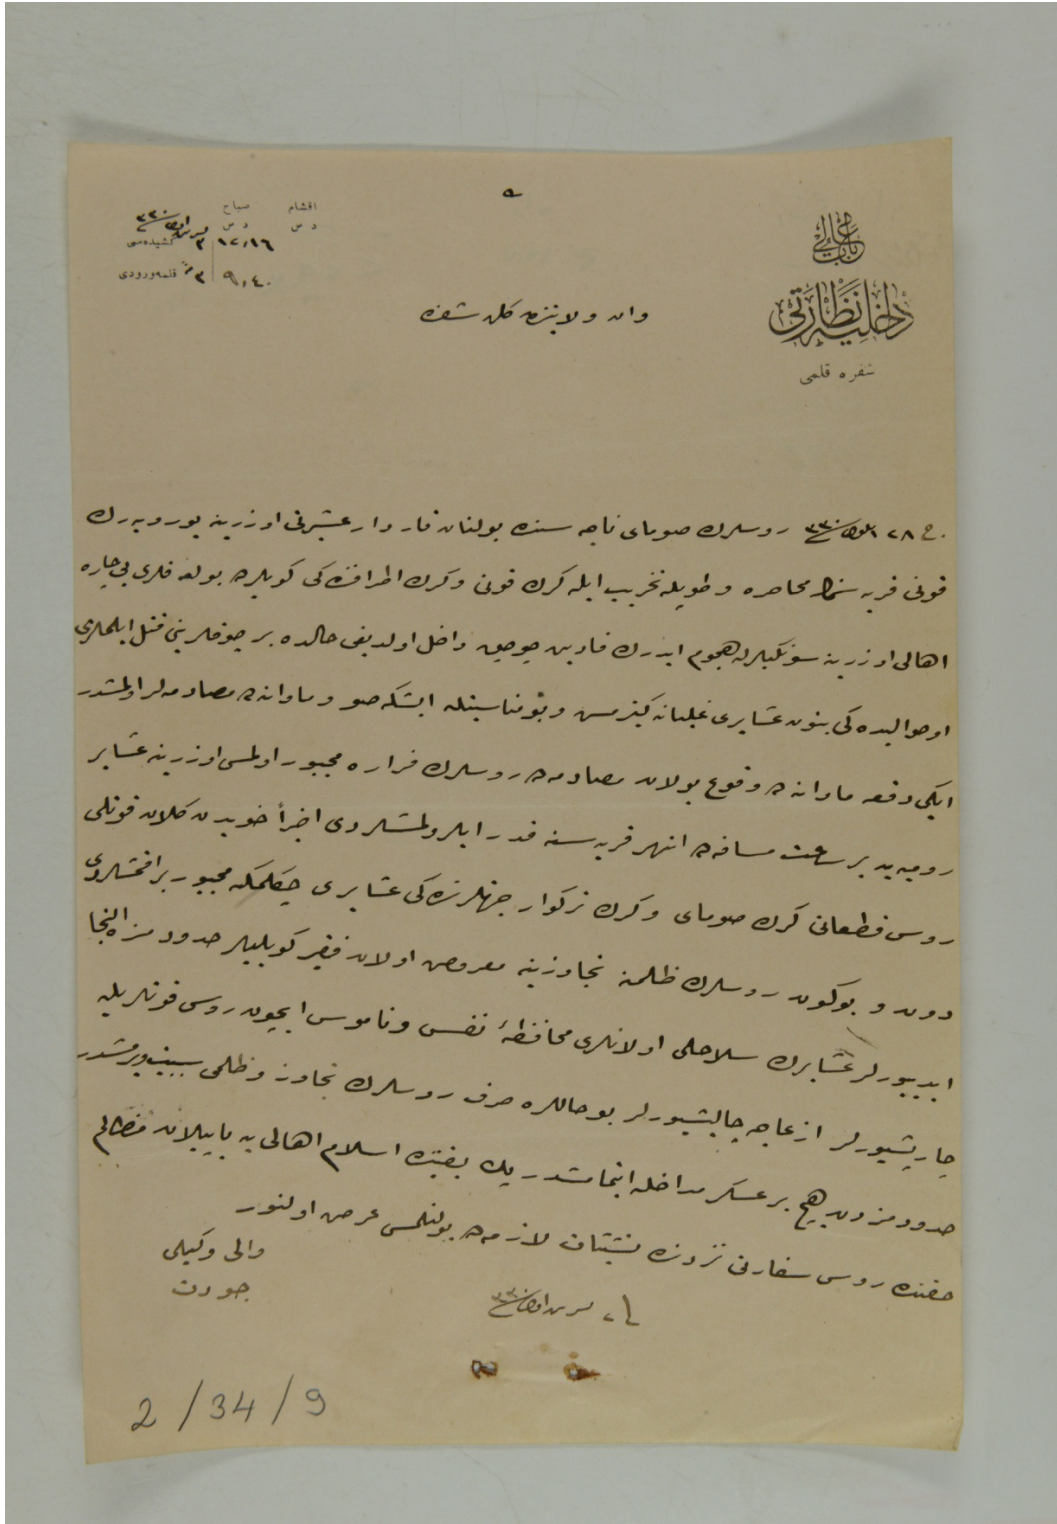 ٩
باب عالی
داخلیه نظارتی
شفره قلمی
اقشام صباح
د س د س
١٢،١٦ ٣ كشیده‌سی
٩،٤٠ ٣ قلمه‌ورودی
وان ولایتندن كلن شفره
ج ٢٨ ایلول ٣٣٠ روسلرك صومای ناحیه سنده بولنان عشیرتی اوزرینه یورویه‌رك
قوتی قریه سنی محاصره و طوپله تخریب ایله كرك قوتی وكرك اطرافنده‌كی كویلرده بولنه قلری بی‌چاره
اهالی اوزرینه سونكیلرله هجوم ایدرك قادین چوجق داخل اولدیغی حالده بر چوقلرینی قتل ایلملری
او حوالیده كی بتون عشایری غلیانه كتیرمش و بو مناسبتله صو و ماوانه‌ده مصادمه‌لر اولمشدر
ایكی دفعه ماوانه‌ده وقوع بولان مصادمه‌ده روسلرك فراره مجبور اولمسی اوزرینه عشایر
رومیه‌یه بر ساعت مسافه‌ده انهر قریه سنه قدر ایلرولمشلردی اخیراً خویدن كلان قوتلی
روس قطعاتی كرك صومای وكرك تركوار جهتلرنده‌كی عشایری چكلمكه مجبور براقمشلردی
دون و بوكون روسلرك ظلمنه تجاوزینه معروض اولان فقیر كویلیلر حدودمزه التجا
ایدییورلر عشایرك سلاحلی اولانلری محافظهٔ نفس و ناموس ایچون روس قوتلریله
چارپیشیورلر ازعاجه چالیشیورلر بو حاللره صرف روسلرك تجاوز و ظلمی سببیت ویرمشدر
حدودمزدن هیچ بر عسكر مداخله ایتمامشدر اسلام اهالی‌یه یاپیلان مظالم
حقنده روس سفارتی نزدنده تشبثات لازمه‌ده بولنلمسی عرض اولنور
والی وكیلی
جودت
تشرین اول ٣٣٠
2 / 34 / 9